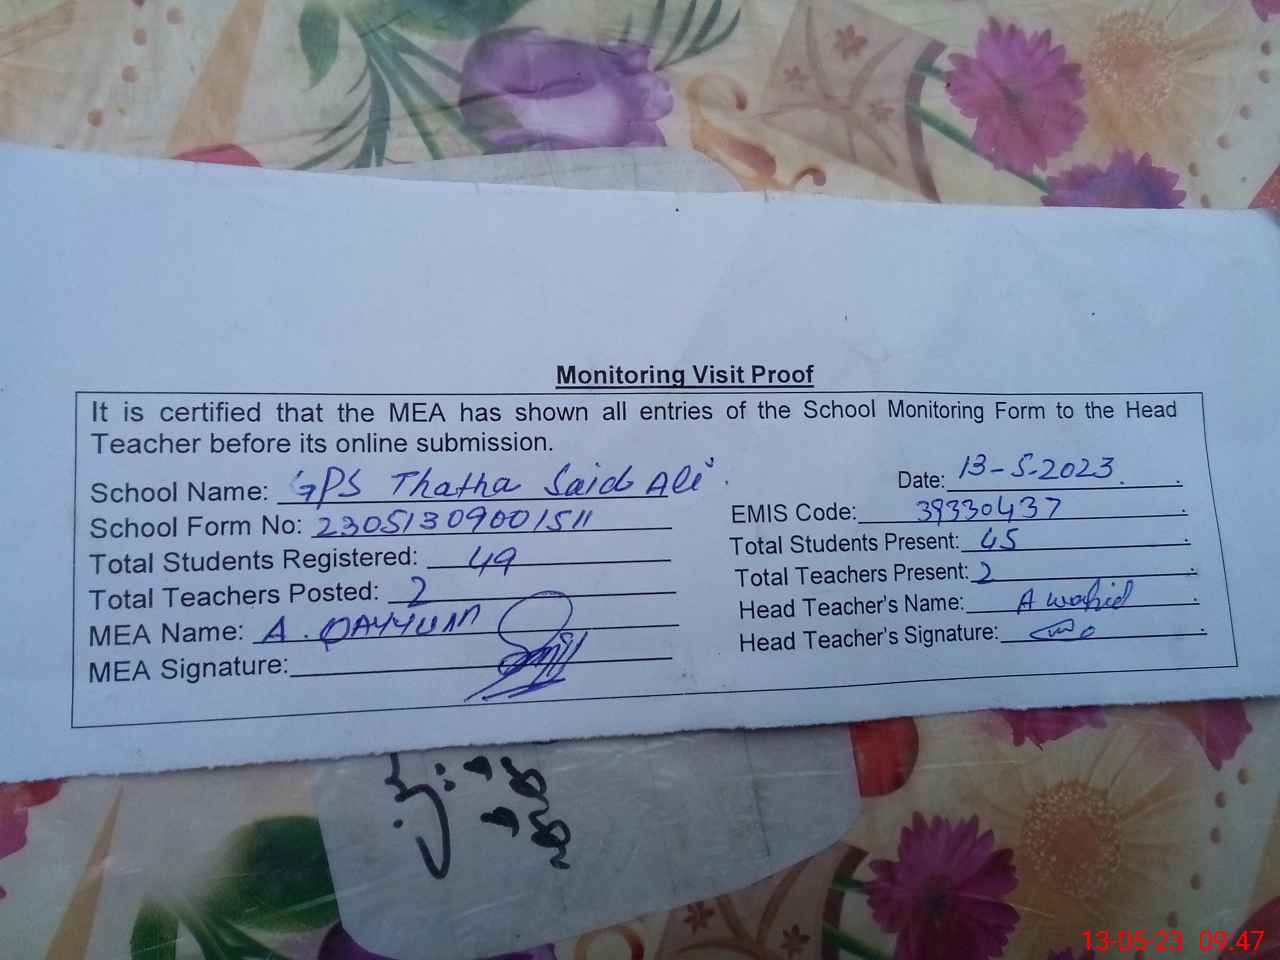 Monitoring Visit Proof
It is certified that the MEA has shown all entries of the School Monitoring Form to the Head
Teacher before its online submission.
School Name: GPS Thatha Said Ali
Date: 13-5-2023
School Form No: 230513090015 11
EMIS Code: 39330437
Total Students Registered: 49
Total Students Present: 45
Total Teachers Posted: 2
Total Teachers Present: 2
MEA Name: A. QAYYUM
Head Teacher's Name: A wahid
MEA Signature:
Head Teacher's Signature:
13-05-23 09:47